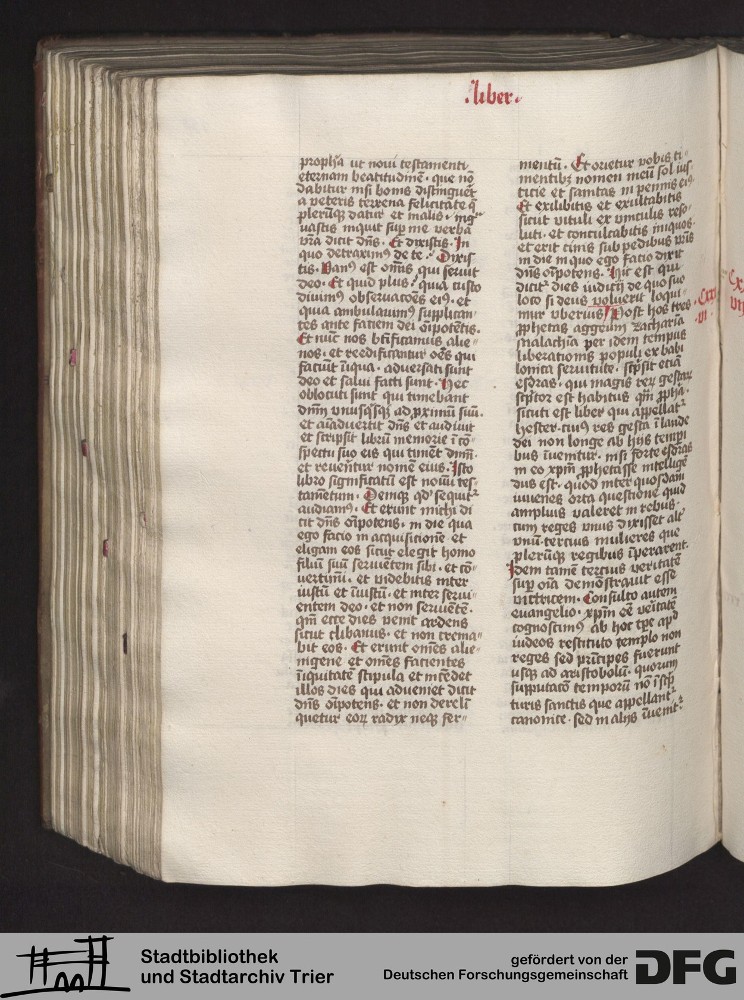 .liber.
proph̄a ut noui testamenti
eternam beatitudinē · que nō
dabitur nisi bonis distinguēt̄
a veteris terrena felicitate q̄
plerūq̄ datur et malis · ing̾
uastis inquit sup̄ me verba
vr̄a dicit dn̄s · Et dixistis · In
quo detraximꝰ de te · Dixis
tis · Vanꝰ est om̄is qui seruit
deo · Et quid plus · quia custo
diuimꝰ obseruac̄oēs eiꝰ · et
quia ambulauimꝰ supplican
tes ante faciem dei oīpotētis ·
Et nūc nos bt̄ificamus alie
nos · et reedificantur oēs qui
faciūt īiqua · aduersati sunt
deo et salui facti sunt · Hec
oblocuti sunt qui timebant
dnm̄ vnusq̄sq̄ ad p̄ximū suū ·
et aīaduertit dn̄s et audiuit
et scripsit librū memorie ī cō
spectu suo eis qui timēt dnm̄ ·
et reuerētur nomē eius · Isto
libro significatū est nouū tes
tamētum · Deniq̄ qd̄ sequit᷑
audiamꝰ · Et erunt michi di
cit dn̄s oīpotens · in die qua
ego facio in acquisitionē · et
eligam eos sicut elegit homo
filiū suū seruientem sibi · et cō
uertimī · et videbitis inter
iustū et īiustū · et inter serui
entem deo · et non seruiētē ·
qm̄ ecce dies venit ardens
sicut clibanus · et non crema
bit eos · Et erunt om̄es alie
nigene et om̄es facientes
īiquitatē stipula et incēdet
illos dies qui adueniet dicit
dn̄s oīpotens · et non dereli
quetur eoꝝ radix neq̄ ser
mentū · Et orietur vobis ti
mentibꝫ nomen meū sol ius
ticie et sanitas in pennis eiꝰ
Et exilibitis et exultabitis
sicut vituli ex vinculis reso
luti · et conculcabitis iniquos ·
et erit cinis sub pedibus vr̄is
in die in quo ego facio dixit
dn̄s oīpotens · Hic est qui
dicit᷑ dies iudicij de quo suo
loco si deus voluerit loqui
mur vberius · Post hos tres
p̄phetas aggeum zachariā
malachiā per idem tempus
liberationis populi ex babi
lonica seruitute · scp̄sit etiā
esdras · qui magis reꝝ gestaꝝ
scp̄tor est habitus q̄m p̄pha ·
sicuti est liber qui appellat᷑
hester · cuiꝰ res gesta ī laude
dei non longe ab hijs tempi
bus īuenitur · nisi forte esdras
in eo xp̄m p̄phetasse intelligē
dus est · quod inter quosdam
iuuenes orta questione quid
amplius valeret in rebus ·
cum reges vnus dixisset alt̄
vinū · tercius mulieres que
plerūq̄ regibus īperarent ·
Idem tamē tercius veritatē
sup̄ oīa demōstrauit esse
victricem · Consulto autem
euangelio · xp̄m eē vei̇tatē
cognoscimꝰ ab hoc tpe apd̄
iudeos restituto templo non
reges sed prīcipes fuerunt
vsq̄ ad aristobolū · quorum
supputacō temporū nō ī sc̄p
turis sanctis que appellant᷑
canonice · sed in alijs īuenit᷑ ·
· Cxx
vi ·
Stadtbibliothek
und Stadtarchiv Trier
gefördert von der
Deutschen Forschungsgemeinschaft
DFG